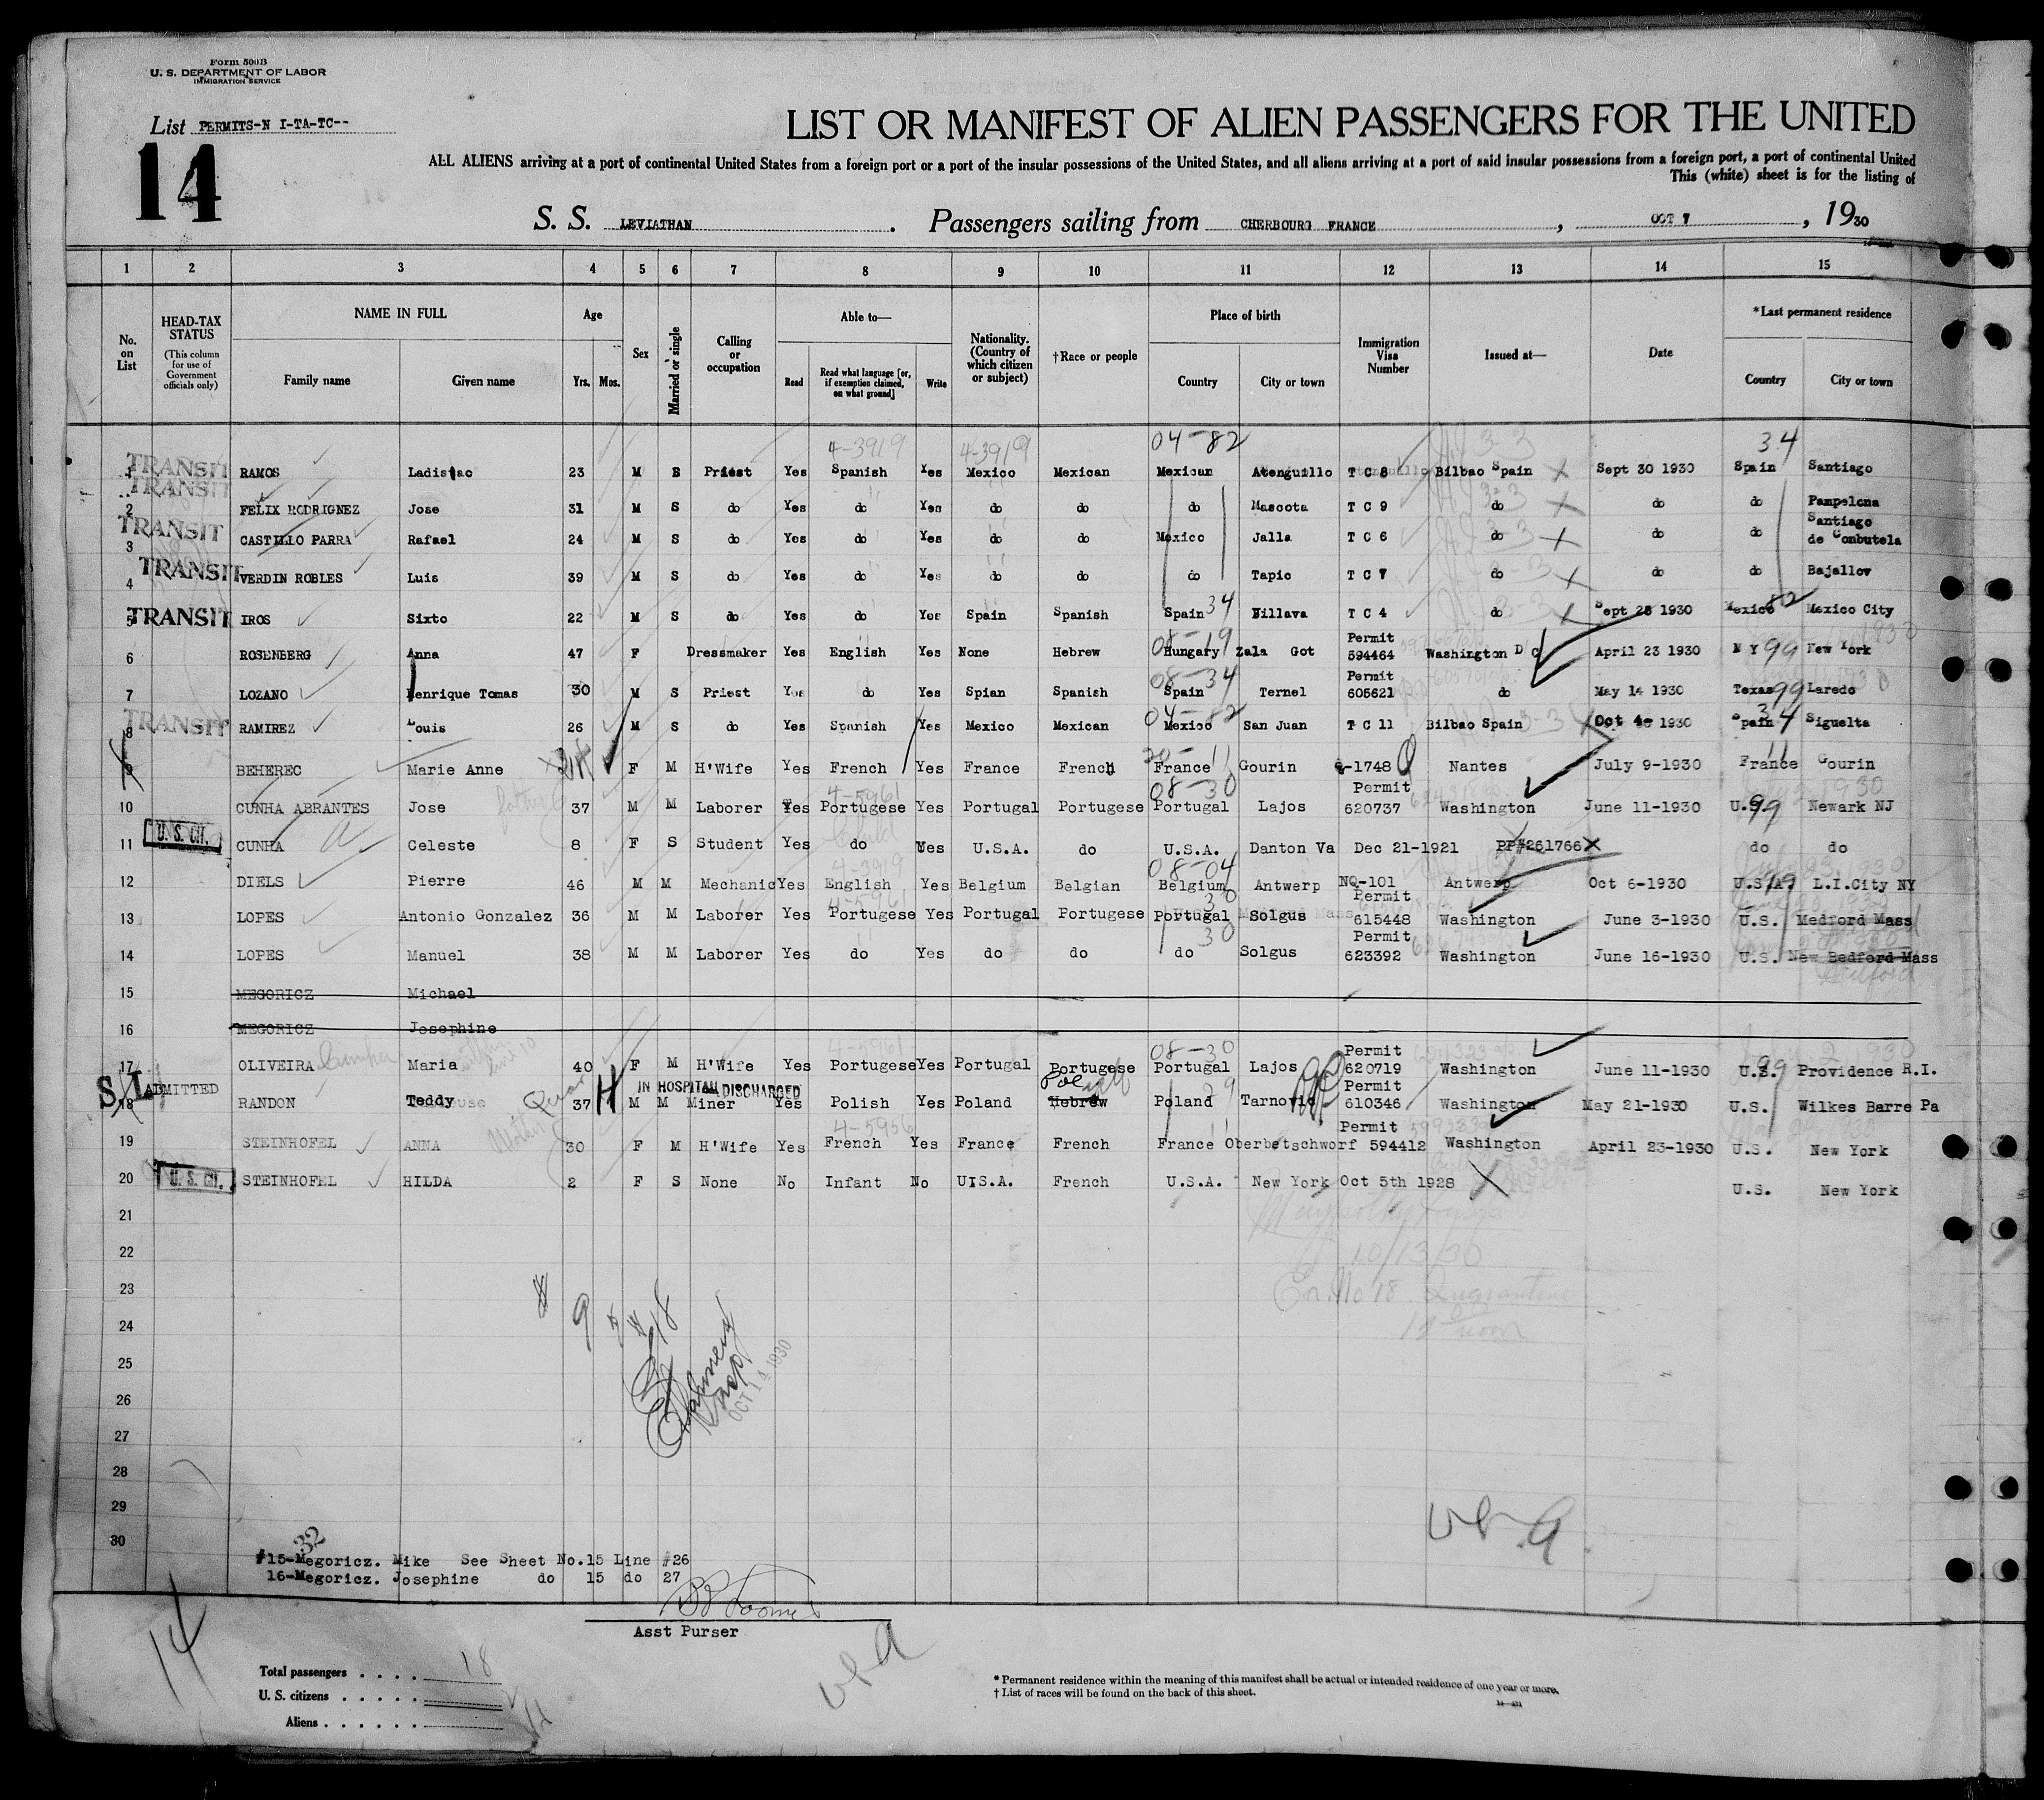 Form 500B
U. S. DEPARTMENT OF LABOR
IMMIGRATION SERVICE
List PERMITS-N I-TA-TC--
14
LIST OR MANIFEST OF ALIEN PASSENGERS FOR THE UNITED
ALL ALIENS arriving at a port of continental United States from a foreign port or a port of the insular possessions of the United States, and all aliens arriving at a port of said insular possessions from a foreign port, a port of continental United
This (white) sheet is for the listing of
S. S. LEVIATHAN. Passengers sailing from CHERBOURG FRANCE, OCT 7, 1930
1 2 3 4 5 6 7 8 9 10 11 12 13 14 15
No. on List
HEAD-TAX STATUS (This column for use of Government officials only)
NAME IN FULL
Family name Given name
Age
Yrs. Mos.
Sex
Married or single
Calling or occupation
Able to—
Read Read what language [or, if exemption claimed, on what ground] Write
Nationality. (Country of which citizen or subject)
†Race or people
Place of birth
Country City or town
Immigration Visa Number
Issued at—
Date
*Last permanent residence
Country City or town
4-3919 4-3919 04-82 34
1 TRANSIT RAMOS Ladislao 23 M S Priest Yes Spanish Yes Mexico Mexican Mexican Atenguillo T C 8 Bilbao Spain Sept 30 1930 Spain Santiago
TRANSIT
2 FELIX RODRIGNEZ Jose 31 M S do Yes do Yes do do do Mascota T C 9 do do do Pampelona
3 TRANSIT CASTILLO PARRA Rafael 24 M S do Yes do Yes do do Mexico Jalla T C 6 do do do Santiago de Conbutela
4 TRANSIT VERDIN ROBLES Luis 39 M S do Yes do Yes do do do Tapic T C 7 do do do Bajallov
5 TRANSIT IROS Sixto 22 M S do Yes do Yes Spain Spanish Spain 34 Billava T C 4 do Sept 28 1930 Mexico 82 Mexico City
08-19
6 ROSENBERG Anna 47 F Dressmaker Yes English Yes None Hebrew Hungary Zala Got Permit 594464 Washington D C April 23 1930 N Y 99 New York
08-34
7 LOZANO Henrique Tomas 30 M S Priest Yes do Yes Spian Spanish Spain Ternel Permit 605621 do May 14 1930 Texas 99 Laredo
04-82
8 TRANSIT RAMIREZ Louis 26 M S do Yes Spanish Yes Mexico Mexican Mexico San Juan T C 11 Bilbao Spain Oct 4 1930 Spain 34 Siguelta
9 BEHEREC Marie Anne 24 F M H'Wife Yes French Yes France French France 11 Gourin Q-1748 Nantes July 9-1930 France 11 Gourin
4-5961 08-30
10 CUNHA ABRANTES Jose 37 M M Laborer Yes Portugese Yes Portugal Portugese Portugal Lajos Permit 620737 Washington June 11-1930 U.S. 99 Newark NJ
11 U. S. CH. CUNHA Celeste 8 F S Student Yes do Yes U.S.A. do U.S.A. Danton Va Dec 21-1921 PP#261766 do do
4-3919 08-04
12 DIELS Pierre 46 M M Mechanic Yes English Yes Belgium Belgian Belgium Antwerp NQ-101 Antwerp Oct 6-1930 U.S.A. L.I.City NY
4-5961 30
13 LOPES Antonio Gonzalez 36 M M Laborer Yes Portugese Yes Portugal Portugese Portugal Solgus Permit 615448 Washington June 3-1930 U.S. Medford Mass
30
14 LOPES Manuel 38 M M Laborer Yes do Yes do do do Solgus Permit 623392 Washington June 16-1930 U.S. New Bedford Mass
15 MEGORICZ Michael
16 MEGORICZ Josephine
4-5961 08-30
17 OLIVEIRA Cunha Maria 40 F M H'Wife Yes Portugese Yes Portugal Portugese Portugal Lajos Permit 620719 Washington June 11-1930 U.S. 99 Providence R.I.
S/I ADMITTED H IN HOSPITAL DISCHARGED
18 RANDON Teddy 37 M M Miner Yes Polish Yes Poland Hebrew Poland 29 Tarnovic Permit 610346 Washington May 21-1930 U.S. Wilkes Barre Pa
4-5956
19 STEINHOFEL ANNA 30 F M H'Wife Yes French Yes France French France Oberbetschworf Permit 594412 Washington April 23-1930 U.S. New York
20 U. S. CH. STEINHOFEL HILDA 2 F S None No Infant No UIS.A. French U.S.A. New York Oct 5th 1928 U.S. New York
21
22
10/13/30
23
No 18 Quarantine
24
9
OCT 14 1930
25
26
27
28
29
30
32
#15-Megoricz. Mike See Sheet No.15 Line #26
16-Megoricz. Josephine do 15 do 27
Asst Purser
14
Total passengers 18
U. S. citizens
Aliens
* Permanent residence within the meaning of this manifest shall be actual or intended residence of one year or more.
† List of races will be found on the back of this sheet.